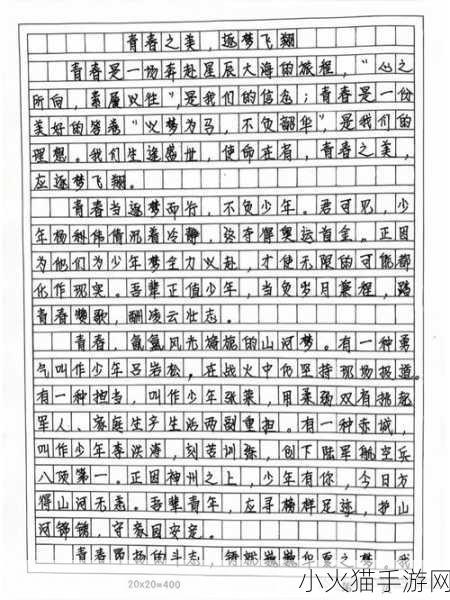 青春之美，逐梦飞翔
青春是一场奔赴星辰大海的旅程，“心之
所向，素履以往”，是我们的信念；青春是一份
美好的答卷“以梦为马，不负韶华”，是我们的
理想。我们生逢盛世，使命在肩，青春之美，
应逐梦飞翔。
青春当逐梦而行，不负少年。君可见，少
年杨倩伟倚沉着冷静，终夺得奥运首金。正因
为他们为少年梦全力以赴，才使无限的可能都
化作那实。吾辈正值少年，当负岁月兼程，踏
青春赞歌，酬凌云壮志。
青春，氤氲风光旖旎的山河梦。有一种勇
气叫作少年吕岩松，在战火中仍坚持那场报道。
有一种担当，叫作少年张荣，用柔弱双肩挑起
军人、家庭生产生活两副重担。有一种赤城，
叫作少年李洪海，刻苦训练，创下陆军航空兵
八项第一。正因神州之上，少年有你，今日方
得山河无恙。吾辈青年，应寻榜样足迹，护山
河锦绣，守家国安定。
青春昂扬的斗志，铸就巍巍华夏之梦。我
20x20=400
小火猫手游网